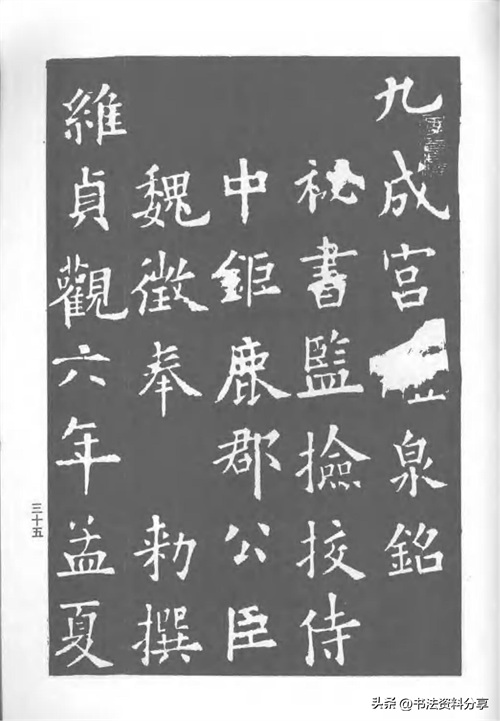 九成宮泉銘
祕書監撿挍侍
中鉅鹿郡公臣
魏徵奉 勑撰
維貞觀六年孟夏
三十五
头条 @书法资料分享